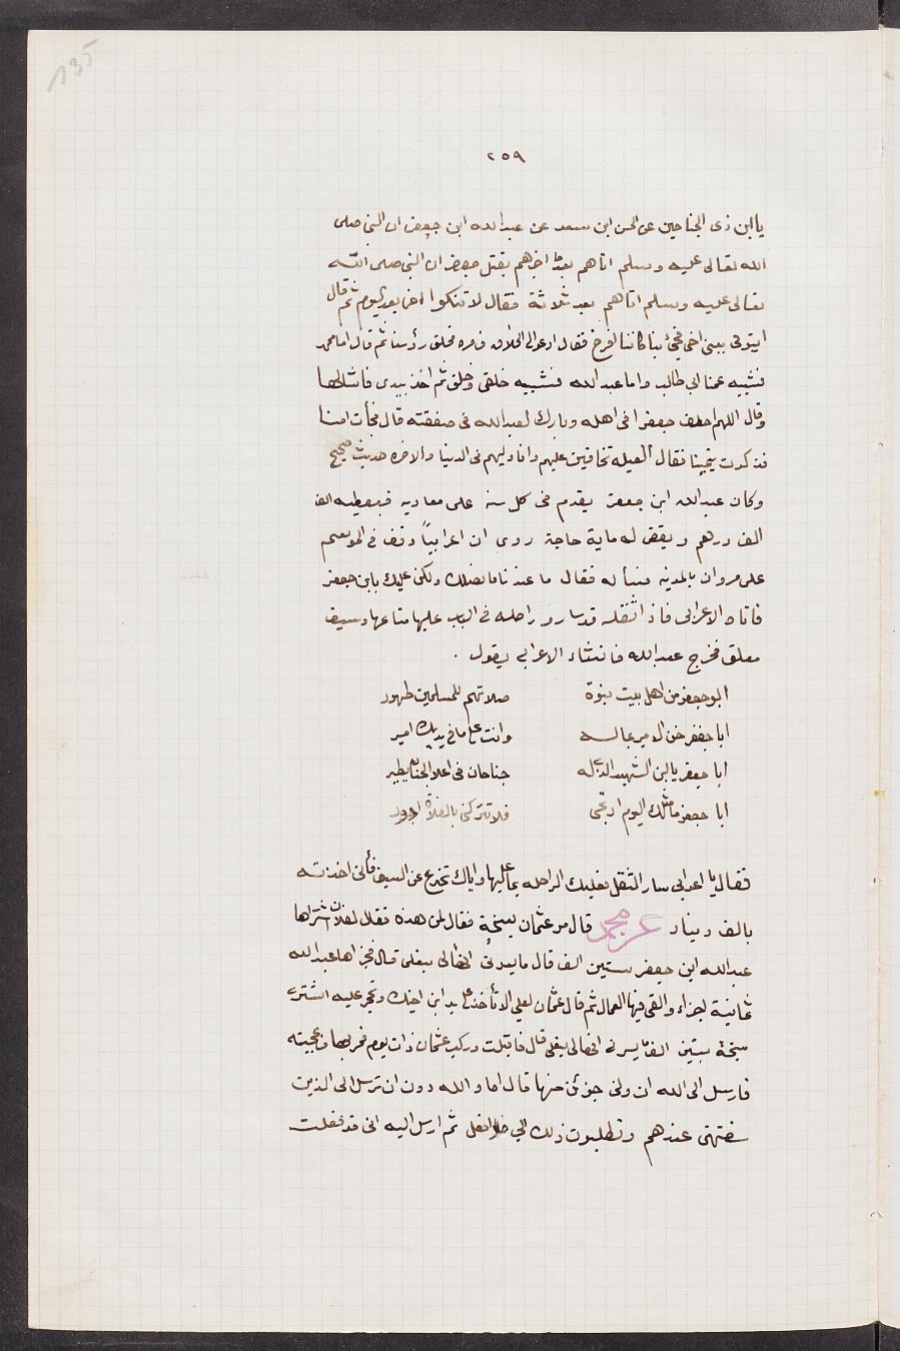 135
٢٥٩
يا ابن ذى الجناحين عن الحسن ابن سعد عن عبدالله ابن جعفر ان النبى صلى
الله تعالى عليه وسلم اتاهم بعد اخرهم بقتل جعفر ان النبى صلى الله
تعالى عليه وسلم اتاهم بعد ثلاثة فقال لا تبكوا اخى بعد اليوم ثم قال
ايتونى ببنى اخى فجئ بنا كاننا افرخ فقال ادعوا لى الحلاق فامره فحلق رؤسنا ثم قال اما محمد
فشبيه عمنا ابى طالب واما عبدالله فشبيه خلقى وخلقى ثم اخذ بيدى فاشالها
وقال اللهم اخلف جعفرا فى اهله وبارك لعبدالله فى صفقته قال فجأت امنا
فذكرت يتمنا فقال العيله تخافين عليهم وانا وليهم فى الدنيا والاخره حديث صحيح
وكان عبدالله ابن جعفر يقدم فى كل سنه على معاويه فيعطيه الف
الف درهم ويقضى له ماية حاجة روى ان اعرابياً وقف فى الموسم
على مروان بالمدينه فسأله فقال ما عندنا ما نصلك ولكن عليك بابن جعفر
فاتاه الاعرابى فاذا ثقله قد سار وراحله فى الباب عليها متاعها وسيف
معلق فخرج عبدالله فانشاء الاعرابى يقول .
ابو جعفر من اهل بيت نبوة صلاتهم للمسلمين طهور
ابا جعفر ضن الامير بماله وانت على ما فى يديك امير
ابا جعفر يا ابن الشهيد الذى له جناحان فى اعلا الجنان يطير
ابا جعفر ما مثلك اليوم ارتجى فلا تتركنى بالفلاة ادور
فقال يا اعرابى سار الثقل فعليك الراحله بما عليها واياك تخدع عن السيف فأنى اخذته
بالف دينار قال مر عثمان بسبخة فقال لمن هذه فقال لفلان اشتراها
عبدالله ابن جعفر بستين الف قال ما يسرنى انها لى بنعلى قال فجزاها عبدالله
ثمانية اجزاء والقى فيها العمال ثم قال عثمان لعلى الا تأخذ على يد ابن اخيك وتحجر عليه اشترى
سبخة بستين الف ما يسرنى انها لى بنعلى قال فاقبلت وركب عثمان ذات يوم فمر بها فاعجبته
فارسل الى الله ان ولنى جزئين منها قال اما والله دون ان ترسل الى الذين
سفهتنى عندهم وتطلبون ذلك الى فلا افعل ثم ارسل اليه انى قد فعلت